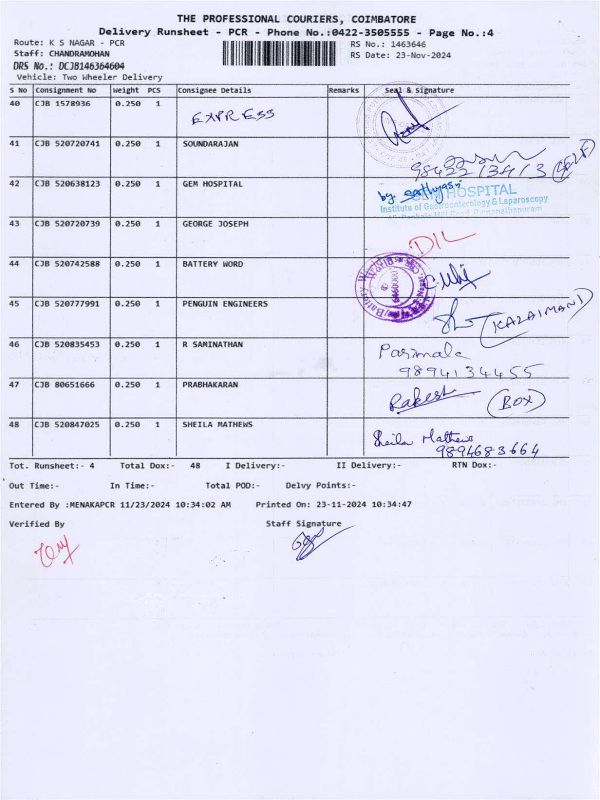 THE PROFESSIONAL COURIERS, COIMBATORE
Delivery Runsheet - PCR - Phone No.:0422-3505555 - Page No.:4
Route: K S NAGAR - PCR RS No.: 1463646
Staff: CHANDRAMOHAN RS Date: 23-Nov-2024
DRS No.: DCJB146364604
Vehicle: Two Wheeler Delivery
S No Consignment No Weight PCS Consignee Details Remarks Seal & Signature
40 CJB 1578936 0.250 1 EXPRESS
41 CJB 520720741 0.250 1 SOUNDARAJAN
(SELF)
42 CJB 520638123 0.250 1 GEM HOSPITAL by sathya GEM HOSPITAL
Institute of Gastroenterology & Laparoscopy
43 CJB 520720739 0.250 1 GEORGE JOSEPH DIL
44 CJB 520742588 0.250 1 BATTERY WORD
45 CJB 520777991 0.250 1 PENGUIN ENGINEERS (KALAIMANI)
46 CJB 520835453 0.250 1 R SAMINATHAN Parimala
9894134455
47 CJB 80651666 0.250 1 PRABHAKARAN Rakesh (BOX)
48 CJB 520847025 0.250 1 SHEILA MATHEWS Sheila Mathews
9894683664
Tot. Runsheet:- 4 Total Dox:- 48 I Delivery:- II Delivery:- RTN Dox:-
Out Time:- In Time:- Total POD:- Delvy Points:-
Entered By :MENAKAPCR 11/23/2024 10:34:02 AM Printed On: 23-11-2024 10:34:47
Verified By Staff Signature